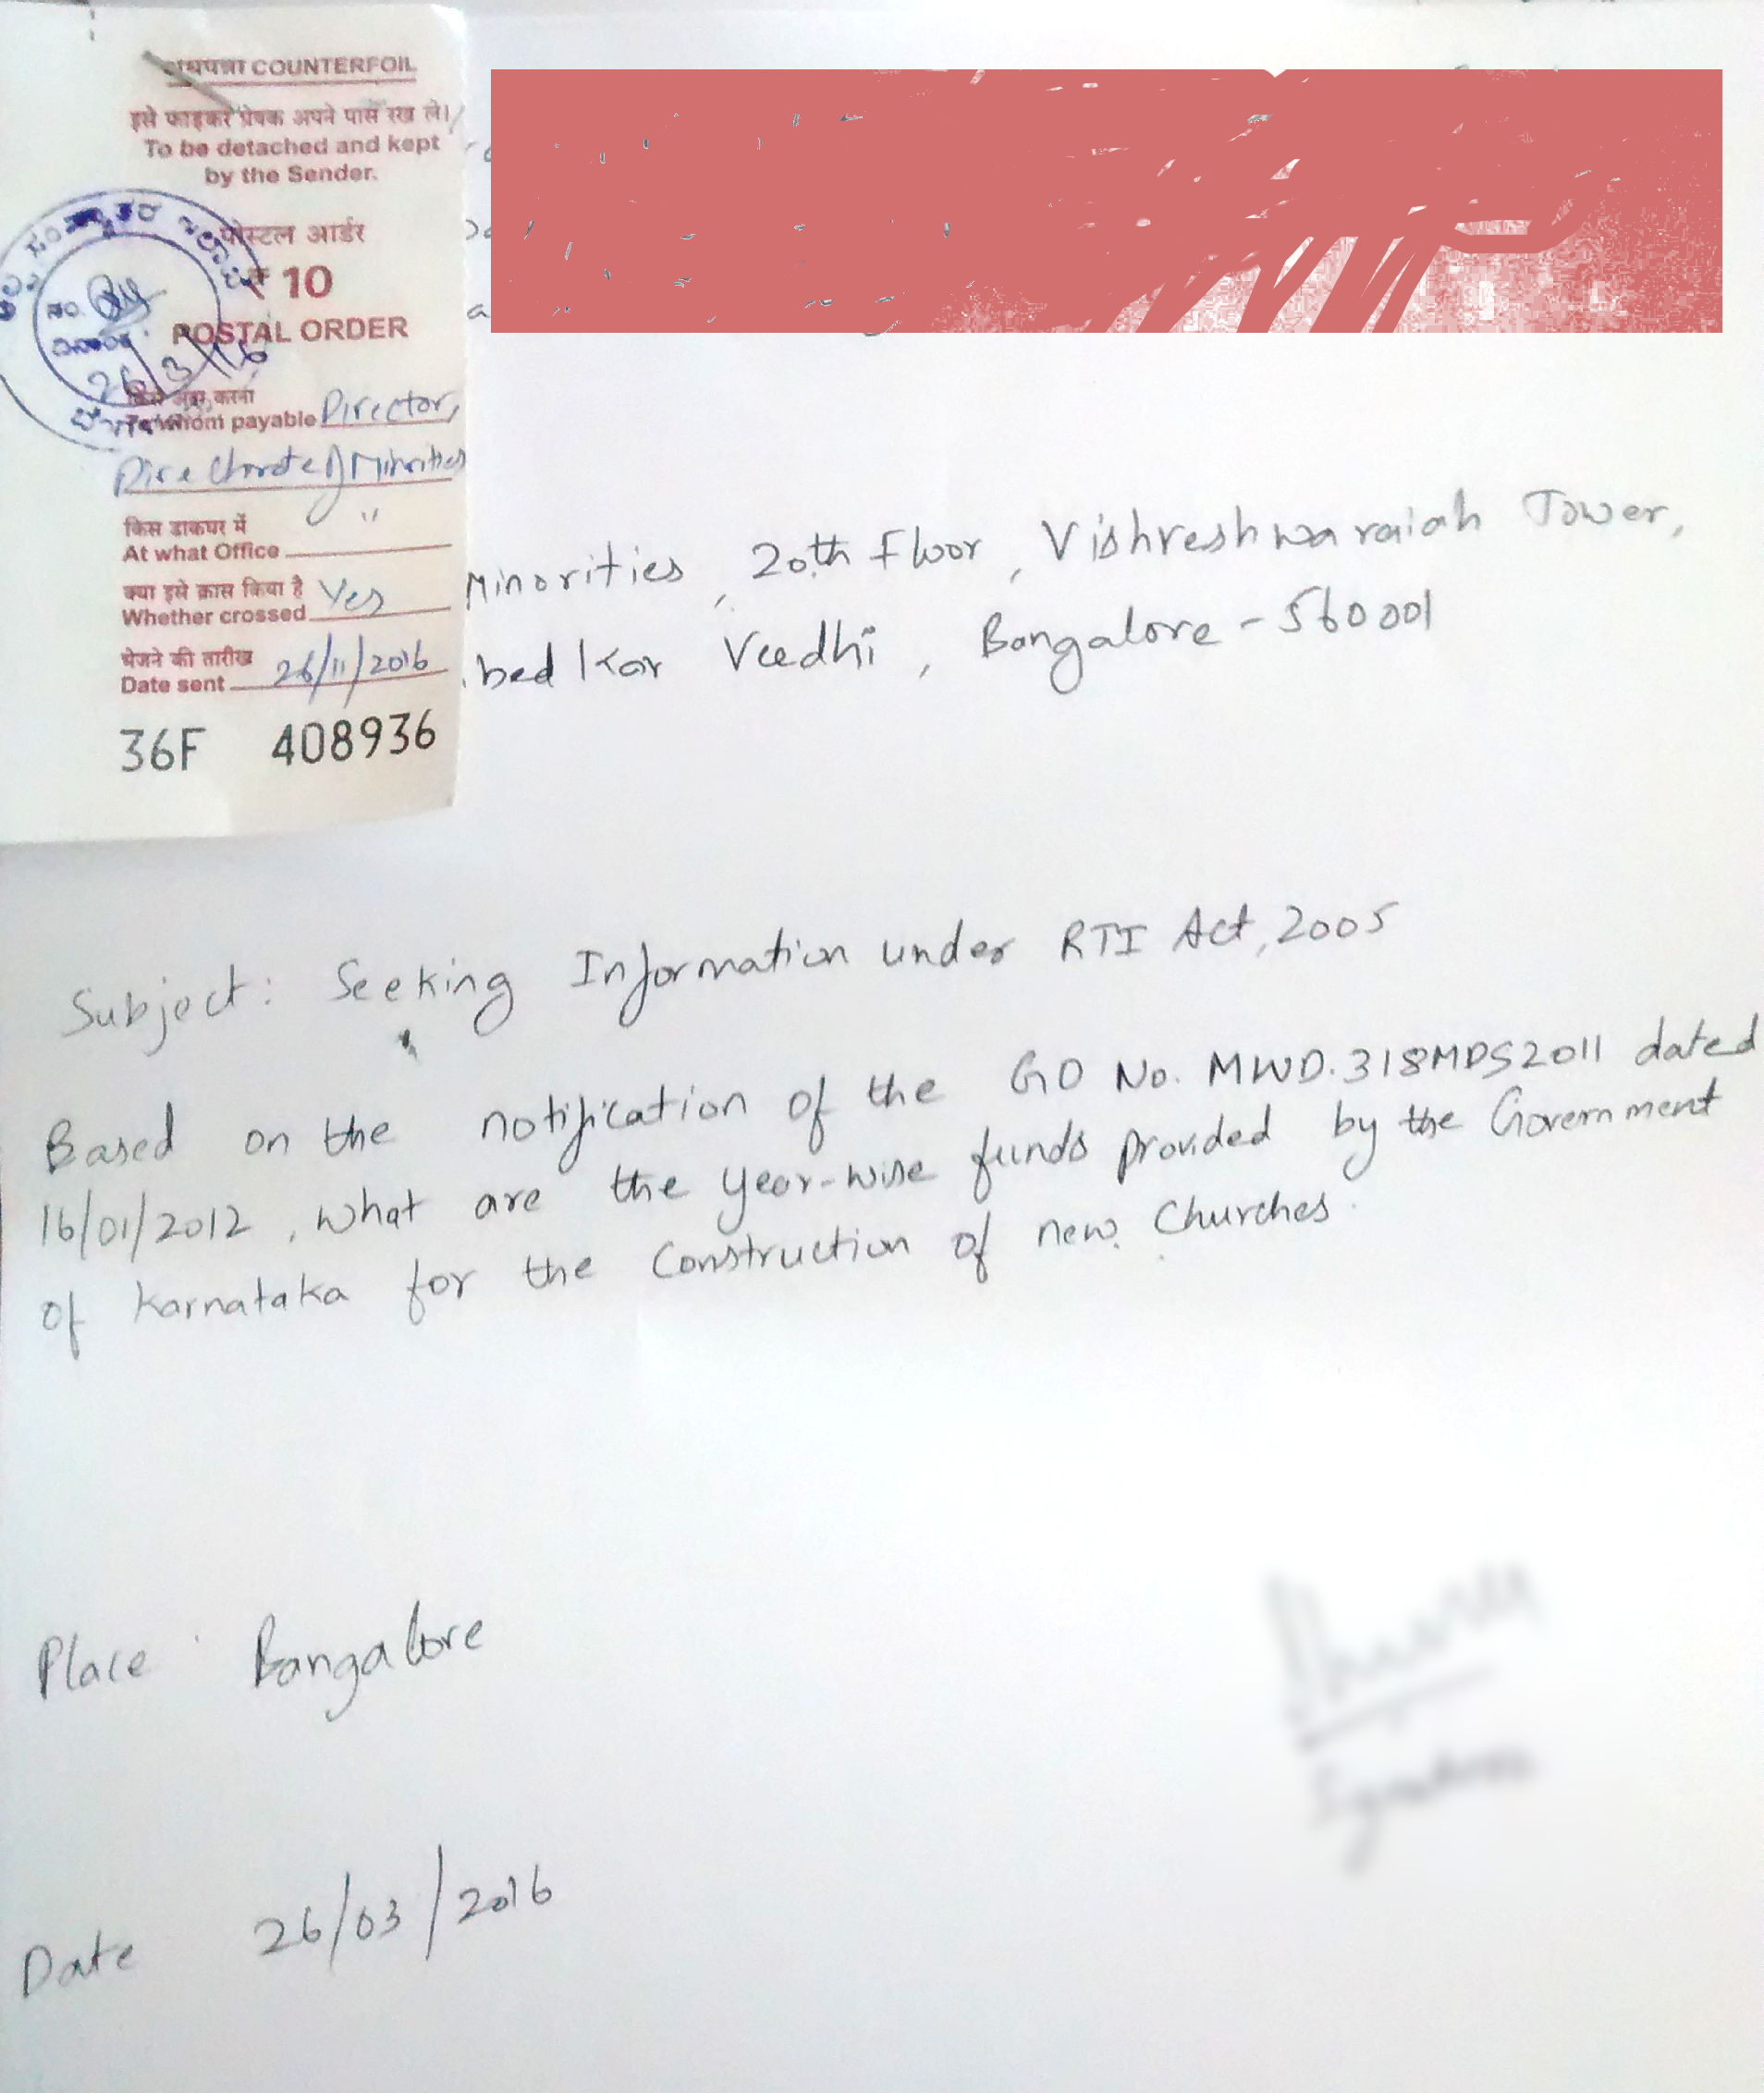 COUNTERFOIL
इसे फाड़कर प्रेषक अपने पास रख ले।
To be detached and kept
by the Sender.
पोस्टल आर्डर
₹ 10
POSTAL ORDER
26/3/16
To Whom payable Director,
Directorate of Minorities
किस डाकघर में
At what Office "
क्या इसे क्रास किया है
Whether crossed Yes
भेजने की तारीख
Date sent 26/11/2016
36F 408936
Minorities, 20th Floor, Vishveshwaraiah Tower,
bedkar Veedhi, Bangalore - 560001
Subject: Seeking Information under RTI Act, 2005
Based on the notification of the GO No. MWD.318MDS2011 dated
16/01/2012, what are the year-wise funds provided by the Government
of Karnataka for the Construction of new Churches.
Place : Bangalore
Date 26/03/2016